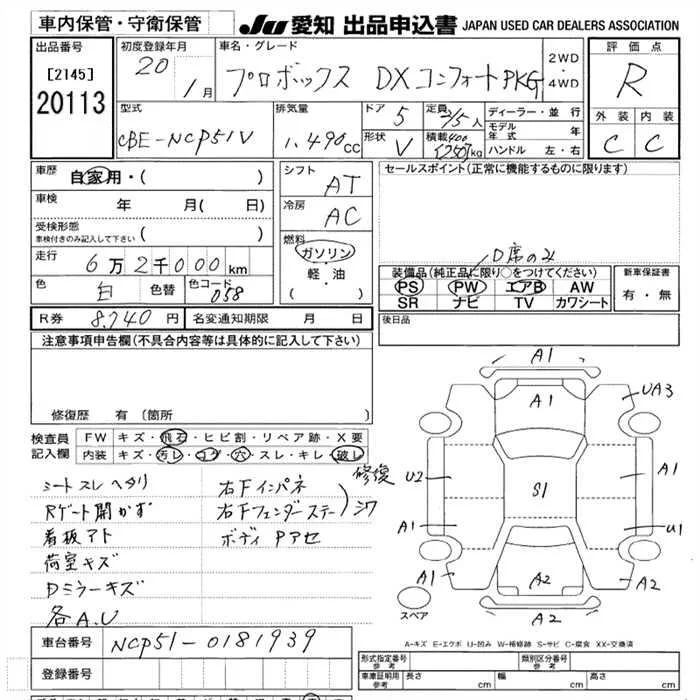 車内保管・守衛保管
JU愛知 出品申込書 JAPAN USED CAR DEALERS ASSOCIATION
出品番号
[2145]
20113
初度登録年月
20年
1月
車名・グレード
プロボックス DXコンフォートPKG
2WD
・
4WD
評価点
R
型式
CBE-NCP51V
排気量
1,490cc
ドア
5
定員
2/5人
形状
V
積載
400
(250)kg
ディーラー・並行
モデル年式 年
ハンドル 左・右
外装
C
内装
C
車歴
自家用・( )
車検
年 月( 日)
受検形態
車検付きのみ記入して下さい
( )
走行
6万2千000km
色
白
色替
色コード
058
シフト
AT
冷房
AC
燃料
ガソリン
・
軽・油
( )
セールスポイント(正常に機能するものに限ります)
D席のみ
装備品(純正品に限り○をつけてください)
PS PW エアB AW
SR ナビ TV カワシート
新車保証書
有・無
R券 8,740円
名変通知期限 月 日
後日品
注意事項申告欄(不具合内容等は具体的に記入して下さい)
修復歴 有(箇所 )
検査員
記入欄
FW キズ・飛石・ヒビ割・リペア跡・X要
内装 キズ・汚レ・コゲ・穴・スレ・キレ・破レ
シートスレ ヘタリ
Rゲート開かず
看板アト
荷室キズ
Dミラーキズ
各A.U
右Fインパネ
右Fフェンダーステー
修復
シワ
ボディ Pアセ
A1
A1
UA3
U2
S1
A1
A1
U1
A1
A2
A2
A2
スペア
A-キズ E-エクボ U-凹み W-補修跡 S-サビ C-腐食 XX-交換済
車台番号 NCP51-0181939
登録番号
形式指定番号
参考
類別区分番号
参考
車庫証明用
参考
長さ cm
幅 cm
高さ cm